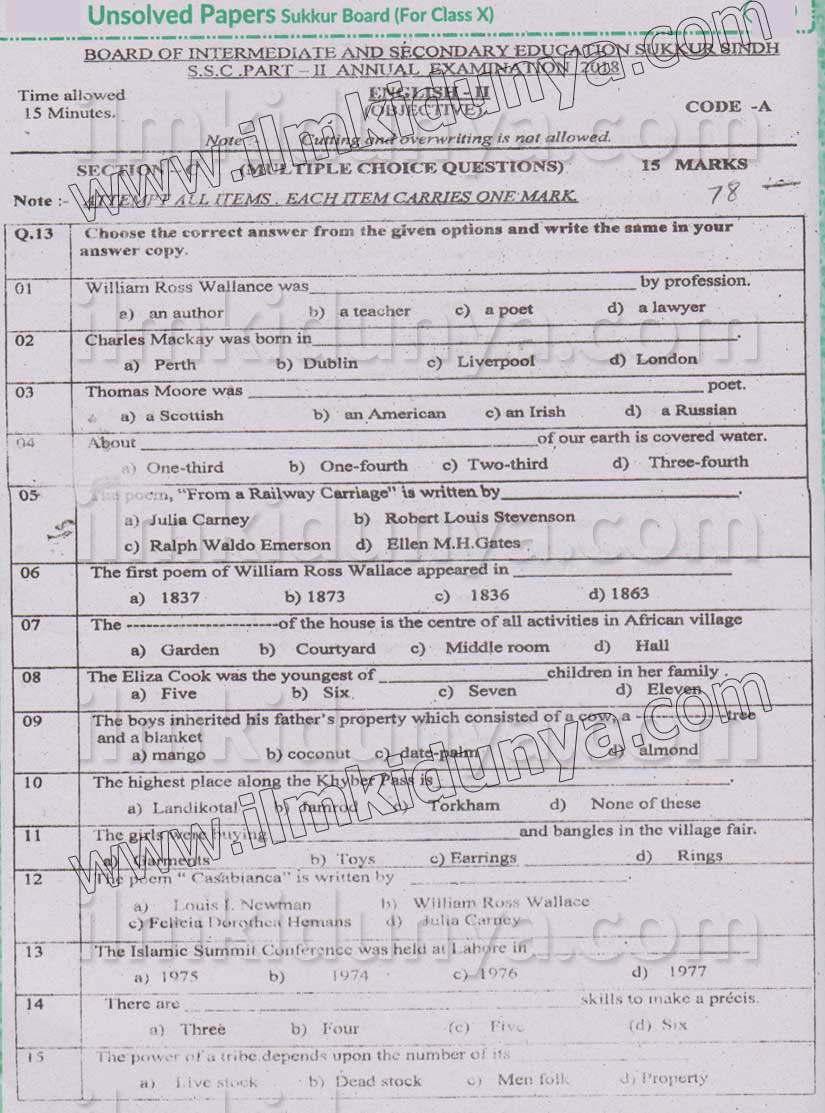 Unsolved Papers Sukkur Board (For Class X)
BOARD OF INTERMEDIATE AND SECONDARY EDUCATION SUKKUR SINDH
S.S.C .PART – II ANNUAL EXAMINATION 2018
Time allowed ENGLISH - II
15 Minutes. (OBJECTIVE) CODE -A
Note :- Cutting and overwriting is not allowed.
SECTION - C (MULTIPLE CHOICE QUESTIONS) 15 MARKS
78
Note :- ATTEMPT ALL ITEMS . EACH ITEM CARRIES ONE MARK.
Q.13 Choose the correct answer from the given options and write the same in your
answer copy.
01 William Ross Wallance was____ by profession.
a) an author b) a teacher c) a poet d) a lawyer
02 Charles Mackay was born in____.
a) Perth b) Dublin c) Liverpool d) London
03 Thomas Moore was ____ poet.
a) a Scottish b) an American c) an Irish d) a Russian
04 About ____ of our earth is covered water.
a) One-third b) One-fourth c) Two-third d) Three-fourth
05 The poem, “From a Railway Carriage” is written by____.
a) Julia Carney b) Robert Louis Stevenson
c) Ralph Waldo Emerson d) Ellen M.H.Gates
06 The first poem of William Ross Wallace appeared in ____
a) 1837 b) 1873 c) 1836 d) 1863
07 The -----------------------of the house is the centre of all activities in African village
a) Garden b) Courtyard c) Middle room d) Hall
08 The Eliza Cook was the youngest of ____children in her family .
a) Five b) Six c) Seven d) Eleven
09 The boys inherited his father's property which consisted of a cow, a -------------- tree
and a blanket
a) mango b) coconut c) date-palm d) almond
10 The highest place along the Khyber Pass is ____.
a) Landikotal b) Jamrod c) Torkham d) None of these
11 The girls were buying ____and bangles in the village fair.
a) Garments b) Toys c) Earrings d) Rings
12 The poem “ Casabianca” is written by ____.
a) Louis I. Newman b) William Ross Wallace
c) Felicia Dorothea Hemans d) Julia Carney
13 The Islamic Summit Conference was held at Lahore in ____.
a) 1975 b) 1974 c) 1976 d) 1977
14 There are ____ skills to make a précis.
a) Three b) Four (c) Five (d) Six
15 The power of a tribe depends upon the number of its ____
a) Live stock b) Dead stock c) Men folk d) Property
www.ilmkidunya.com
www.ilmkidunya.com
ilmkidunya.com
ilmkidunya.com
ilmkidunya.com
ilmkidunya.com
ilmkidunya.com